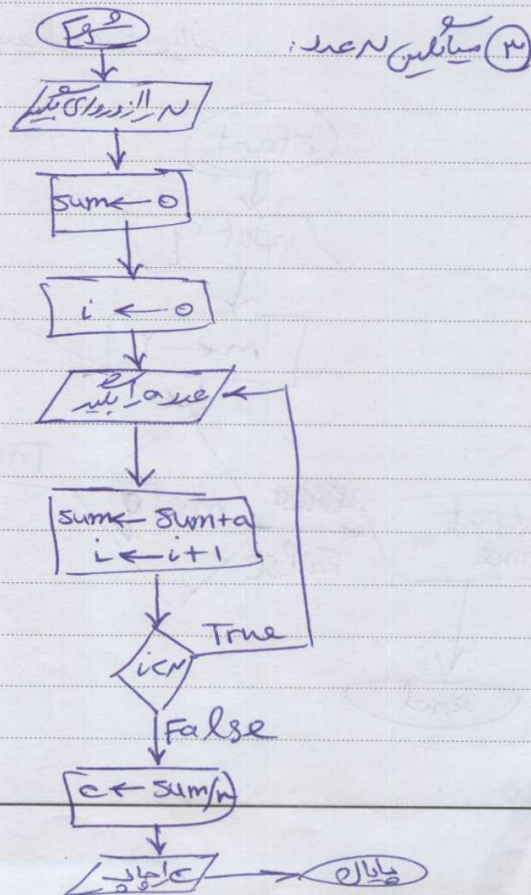 ③ میانگین n عدد:
شروع
n را از ورودی بگیر
sum ← 0
i ← 0
عدد a را بگیر
sum ← sum+a
i ← i+1
i<n
True
False
c ← sum/n
c را چاپ
پایان